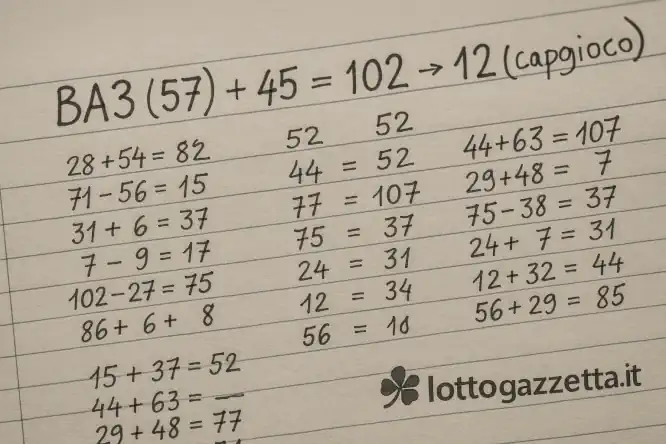 BA3 (57) + 45 = 102 → 12 (capgioco)
28 + 54 = 82
71 - 56 = 15
31 + 6 = 37
7 - 9 = 17
102 - 27 = 75
86 + 6 + 8
15 + 37 = 52
44 + 63 = —
29 + 48 = 77
52 52
44 = 52
77 = 107
75 = 37
24 = 31
12 = 34
56 = 18
44 + 63 = 107
29 + 48 = 7
75 - 38 = 37
24 + 7 = 31
12 + 32 = 44
56 + 29 = 85
lottogazzetta.it